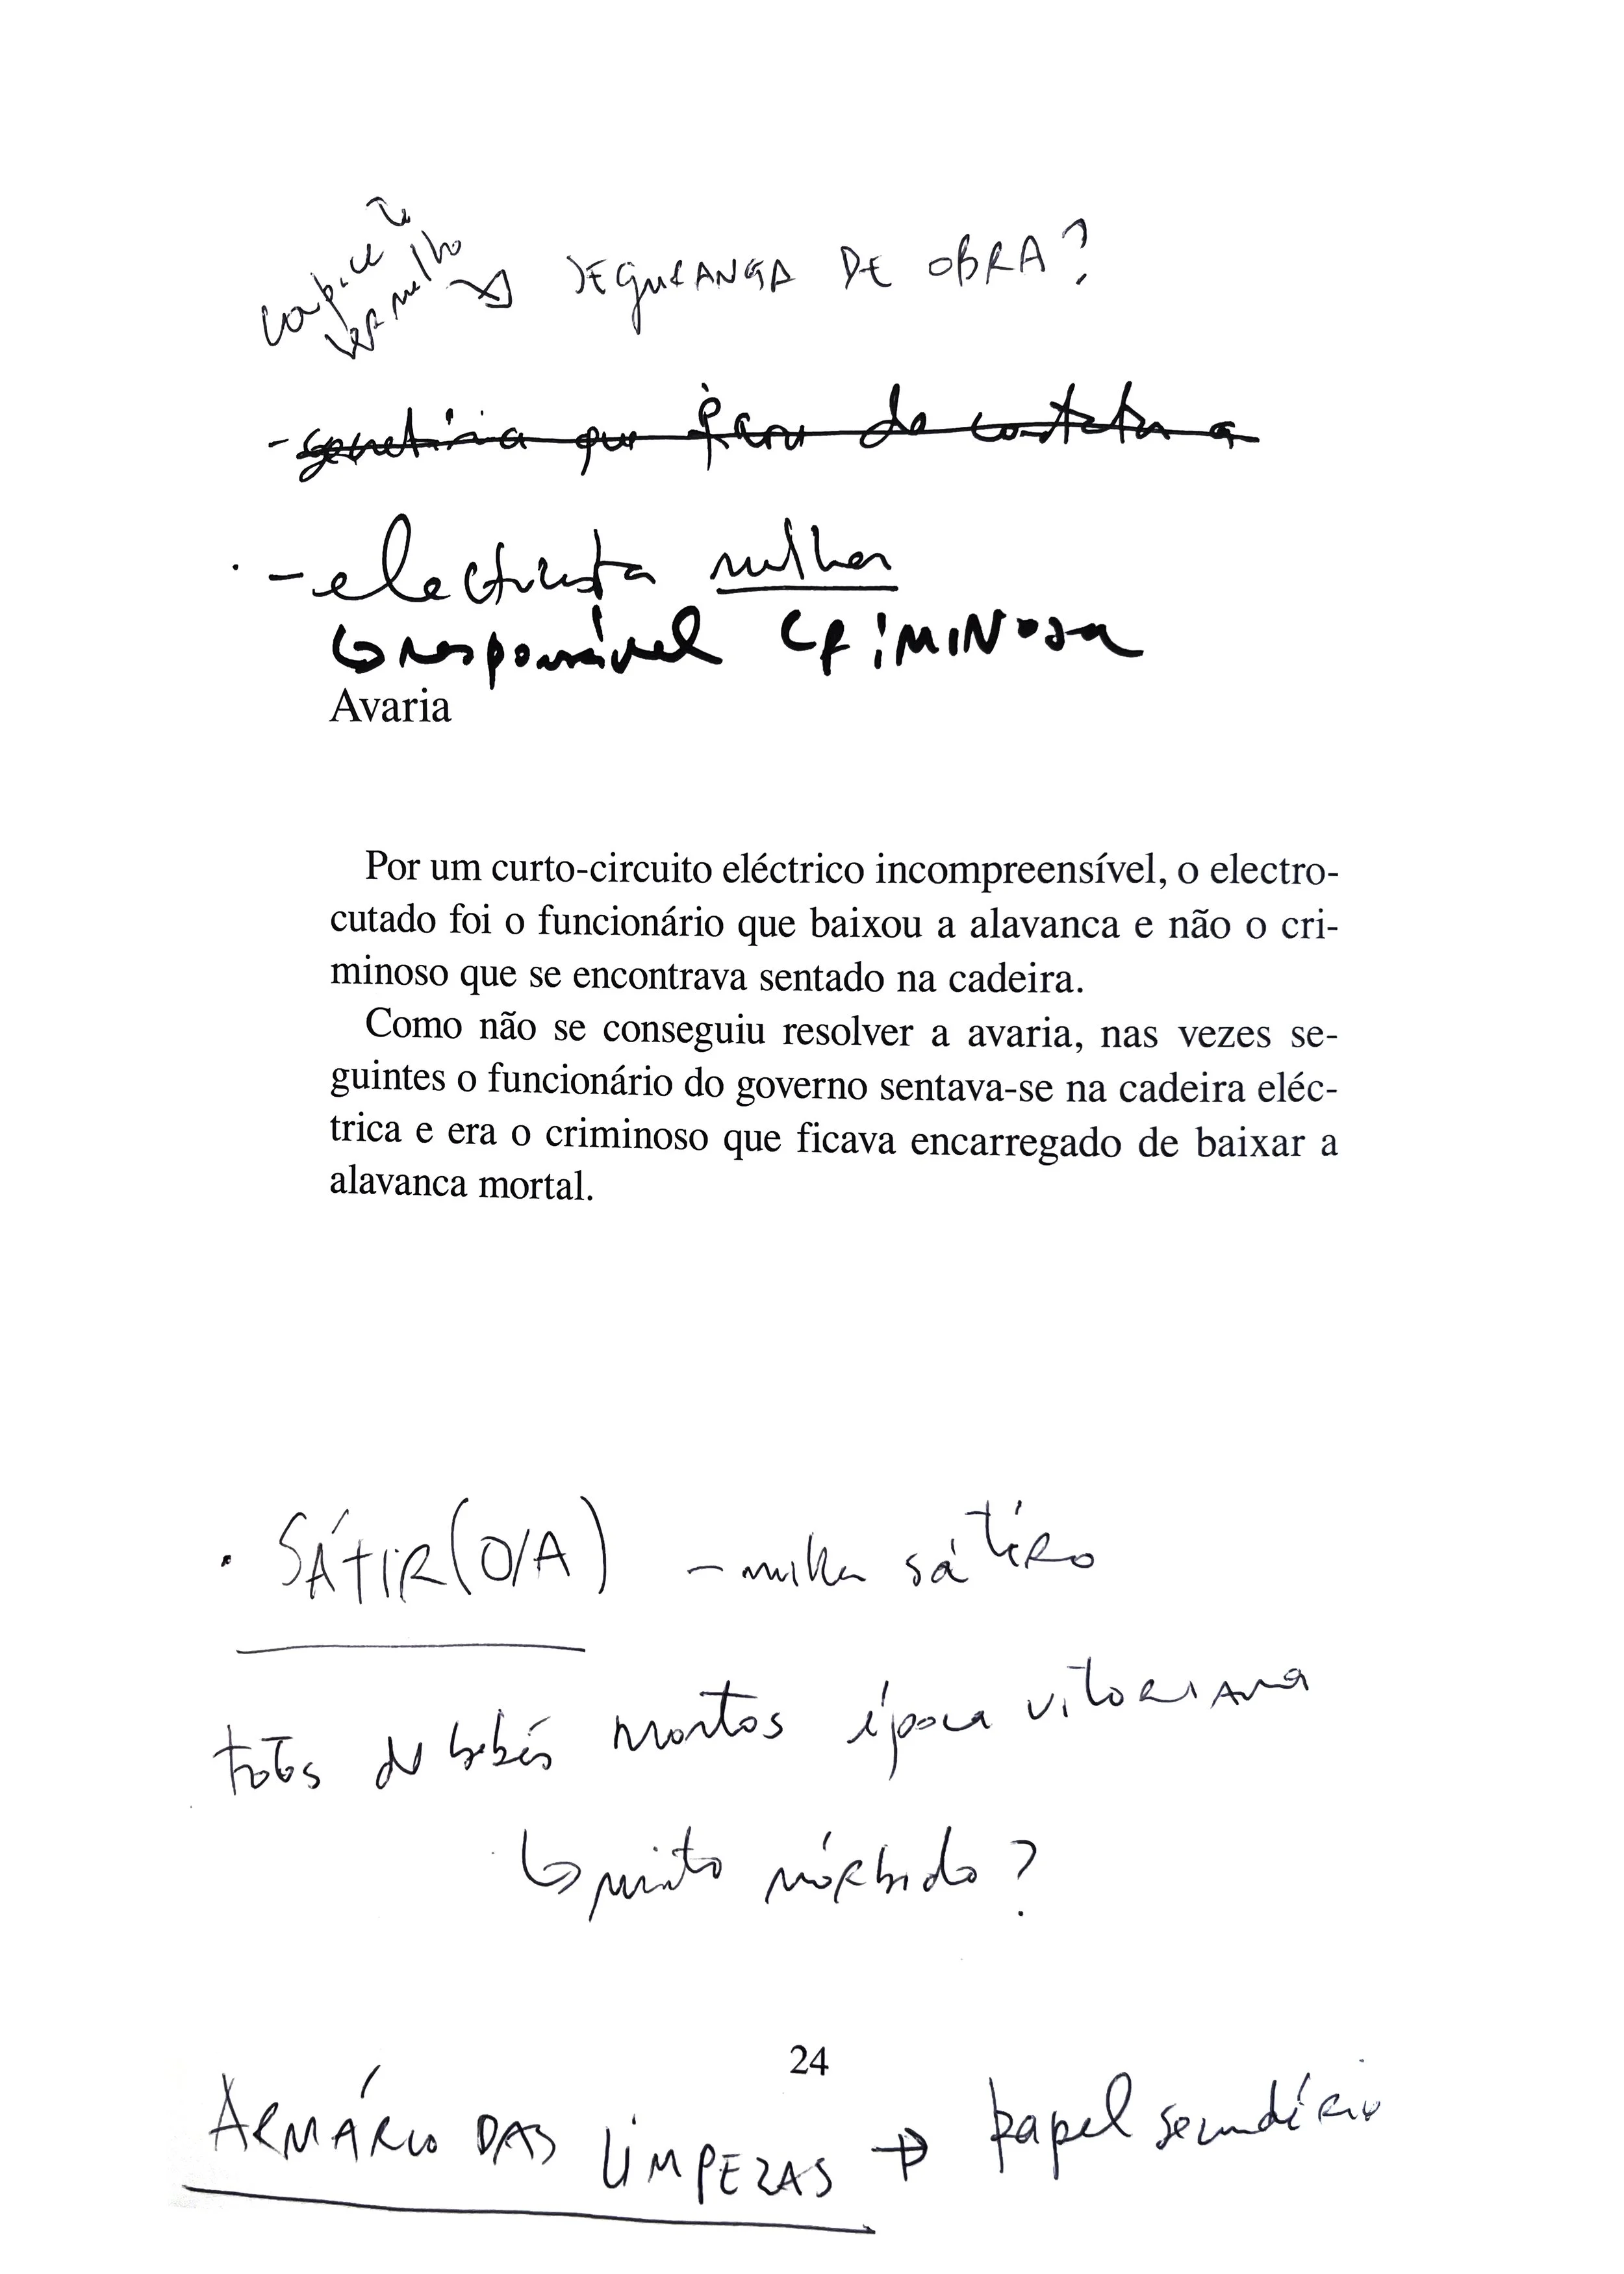 capacete
vermelho
SEGURANÇA DE OBRA?
- que para de
- electricista mulher
↳ responsável CRIMINOSA
Avaria
Por um curto-circuito eléctrico incompreensível, o electro-
cutado foi o funcionário que baixou a alavanca e não o cri-
minoso que se encontrava sentado na cadeira.
Como não se conseguiu resolver a avaria, nas vezes se-
guintes o funcionário do governo sentava-se na cadeira eléc-
trica e era o criminoso que ficava encarregado de baixar a
alavanca mortal.
· SÁTIR(O/A) - mulher sátiro
fotos de bebés mortos época vitoriana
↳ muito mórbido?
24
ARMÁRIO DAS LIMPEZAS → papel secundário